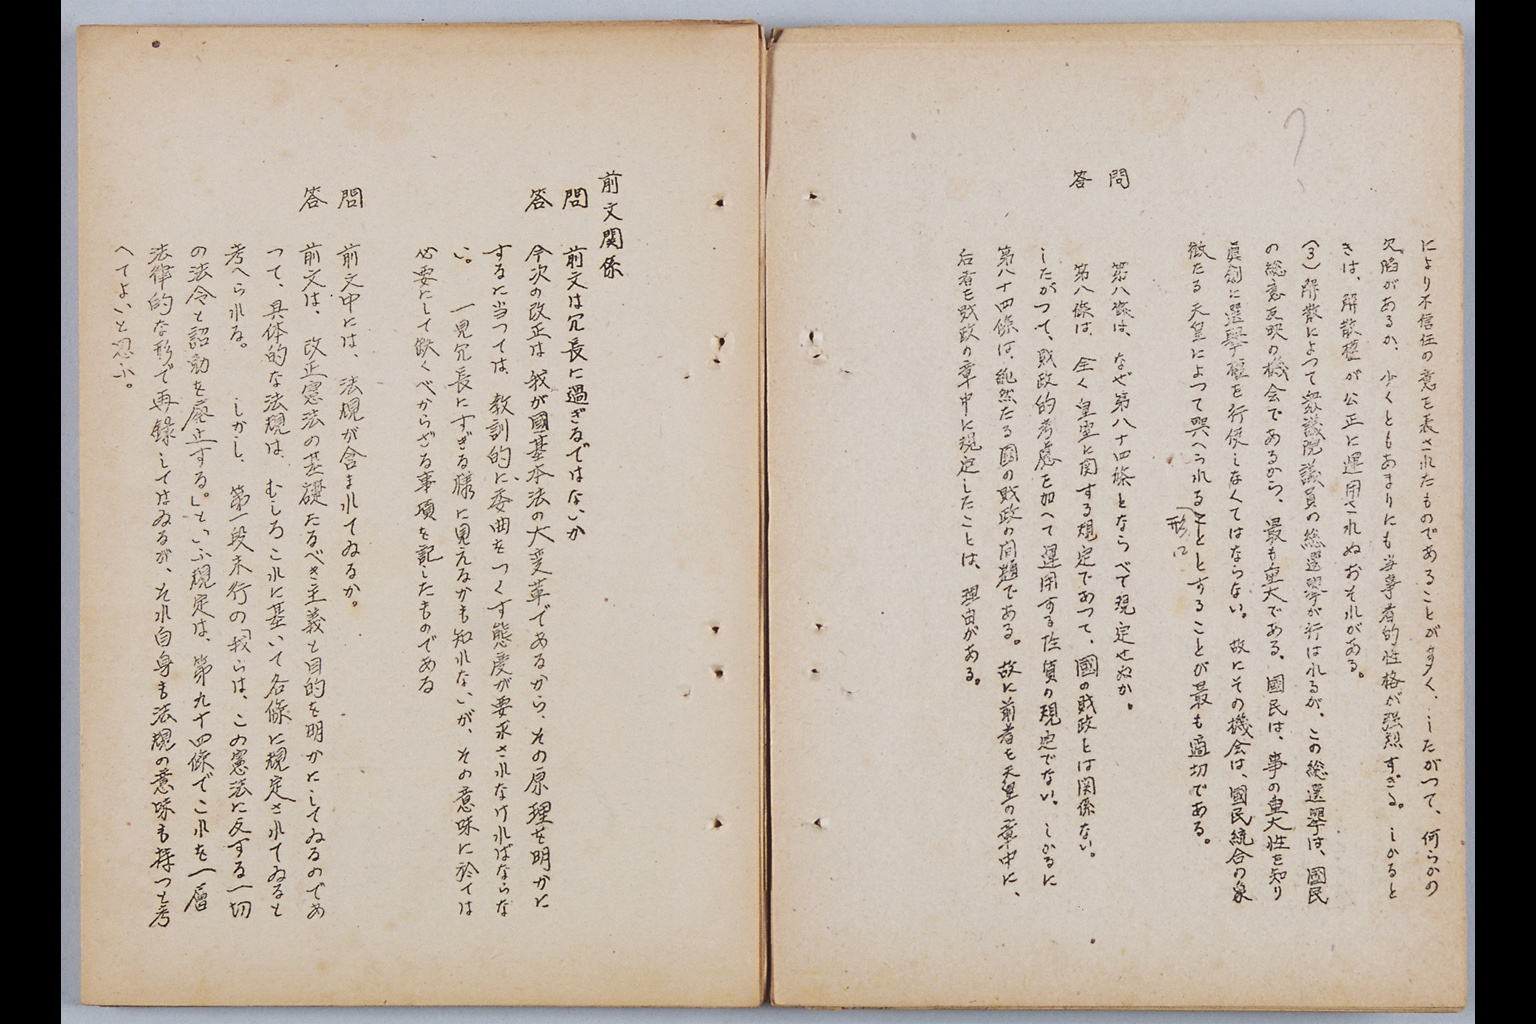 により不信任の意を表されたものであることが多く、したがつて、何らかの
欠陥があるか、少くともあまりにも当事者的性格が強烈すぎる。しかると
きは、解散権が公正に運用されぬおそれがある。
(3)解散によつて衆議院議員の総選挙が行はれるが、この総選挙は、國民
の総意反映の機会であるから、最も重大である、國民は、事の重大性を知り
眞剣に選挙権を行使しなくてはならない。故にその機会は、國民統合の象
徴たる天皇によつて與へられることとすることが最も適切である。
形に
問 第八條は、なぜ第八十四條とならべて規定せぬか。
答 第八條は、全く皇室に関する規定であつて、國の財政とは関係ない。
したがつて、財政的考慮を加へて運用する性質の規定でない。しかるに
第八十四條は、純然たる國の財政の問題である。故に前者を天皇の章中に、
后者を財政の章中に規定したことは、理由がある。
前文関係
問 前文は冗長に過ぎるではないか
答 今次の改正は我が國基本法の大変革であるから、その原理を明かに
するに当つては、教訓的に委曲をつくす態度が要求されなければならな
い。一見冗長にすぎる様に見えるかも知れないが、その意味に於ては
必要にして欠くべからざる事項を記したものである
問 前文中には、法規が含まれてゐるか。
答 前文は、改正憲法の基礎たるべき主義と目的を明かにしてゐるのであ
つて、具体的な法規は、むしろこれに基いて各條に規定されてゐると
考へられる。しかし、第一段末行の「我らは、この憲法に反する一切
の法令と詔勅を廃止する。」といふ規定は、第九十四條でこれを一層
法律的な形で再録してはゐるが、それ自身も法規の意味も持つと考
へてよいと思ふ。